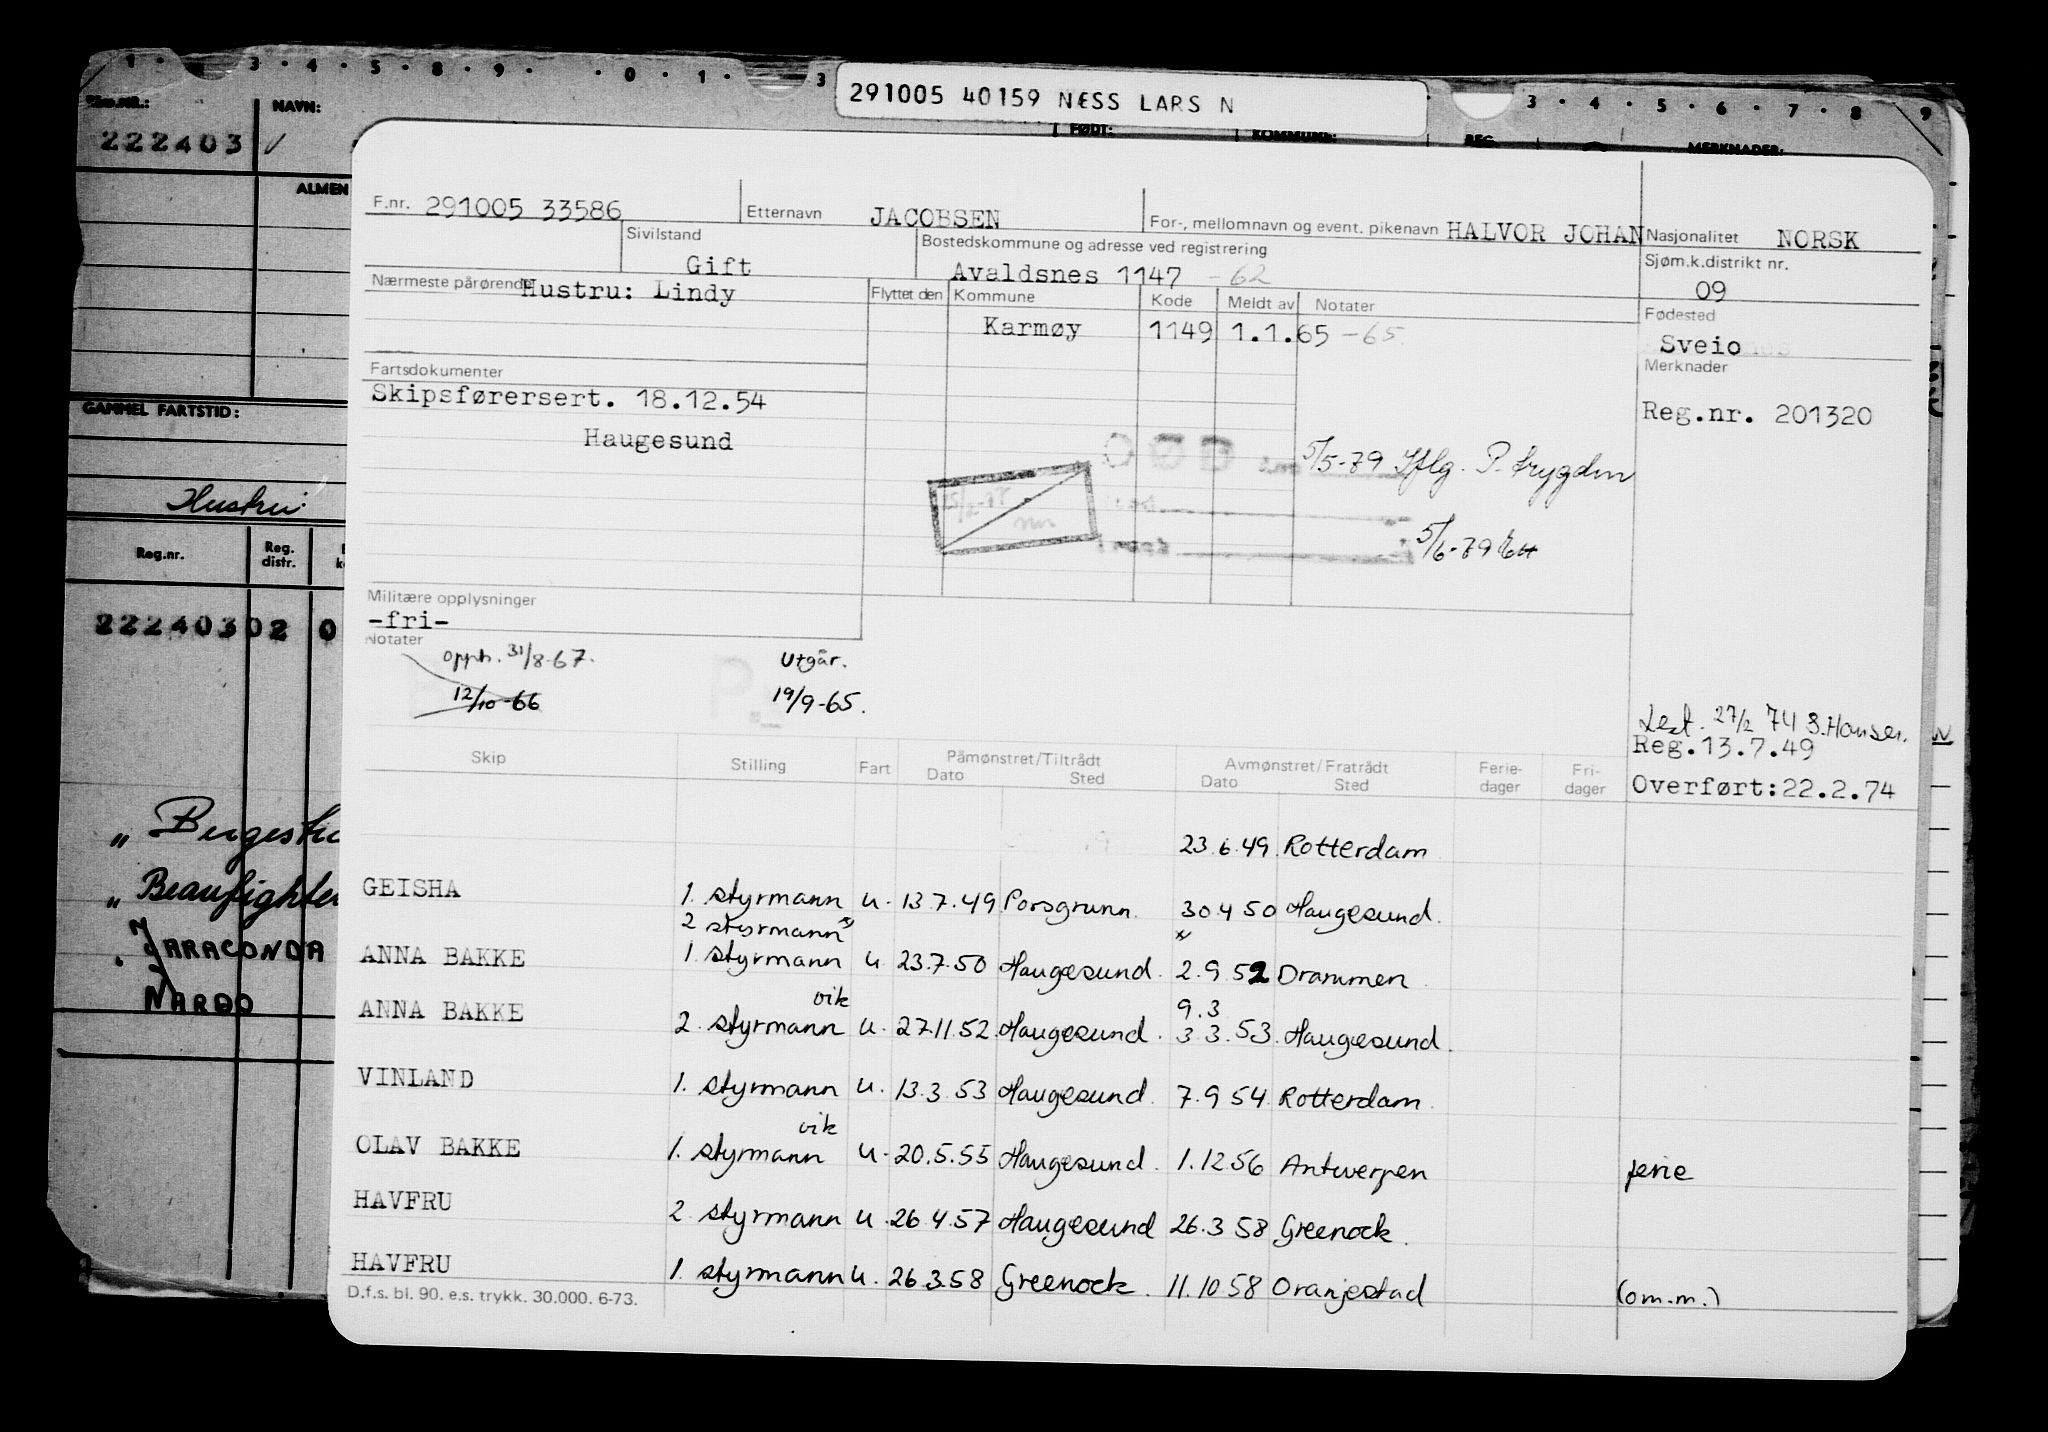 1 · 3 · 4 · 5 · 8 · 9 · · 0 · 1 · 3
291005 40159 NÆSS LARS N
3 · 4 · 5 · 6 · 7 · 8 9
NAVN:
FØDT: KOMMUNE: REG. MERKNADER:
222403
ALMEN
GAMMEL FARTSTID:
Hustru:
Reg.nr. Reg. distr.
22240302 0
" Bergesti
" Beaufighter
" JARACONDA
NARDO
F.nr. 291005 33586 Etternavn JACOBSEN For-, mellomnavn og event. pikenavn HALVOR JOHAN Nasjonalitet NORSK
Sivilstand Gift Bostedskommune og adresse ved registrering Avaldsnes 1147 - 62 Sjøm.k.distrikt nr. 09
Nærmeste pårørende Hustru: Lindy Flyttet den Kommune Kode Meldt av Notater Fødested
Karmøy 1149 1.1.65 - 65. Sveio
Fartsdokumenter Merknader
Skipsførersert. 18.12.54 Reg.nr. 201320
Haugesund
DØD 5/5-79 Iflg. P. trygden
15/2-78
5/6-79
Militære opplysninger
-fri-
Notater
opph. 31/8-67. Utgår.
12/10-66 19/9-65.
Lest. 27/2 74 S.Hansen.
Reg.13.7.49
Overført:22.2.74
Skip Stilling Fart Påmønstret/Tiltrådt Dato Sted Avmønstret/Fratrådt Dato Sted Ferie-dager Fri-dager
23.6.49. Rotterdam
GEISHA 1. styrmann u. 13.7.49 Porsgrunn. 30.4.50 Haugesund.
2 styrmann x) x
ANNA BAKKE 1. styrmann u. 23.7.50 Haugesund. 2.9.52 Drammen
vik 9.3
ANNA BAKKE 2. styrmann u. 27.11.52. Haugesund. 3.3.53. Haugesund.
VINLAND 1. styrmann u. 13.3.53 Haugesund. 7.9.54. Rotterdam.
vik
OLAV BAKKE 1. styrmann u. 20.5.55 Haugesund. 1.12.56 Antwerpen ferie
HAVFRU 2. styrmann u. 26.4.57 Haugesund 26.3.58 Greenock.
HAVFRU 1. styrmann u. 26.3.58 Greenock. 11.10.58 Oranjestad (om.m.)
D.f.s. bl. 90. e.s. trykk. 30.000. 6-73.